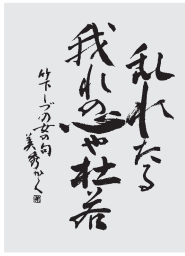 乱れたる
我れの心や杜若
竹下しづの女の句
美秀かく